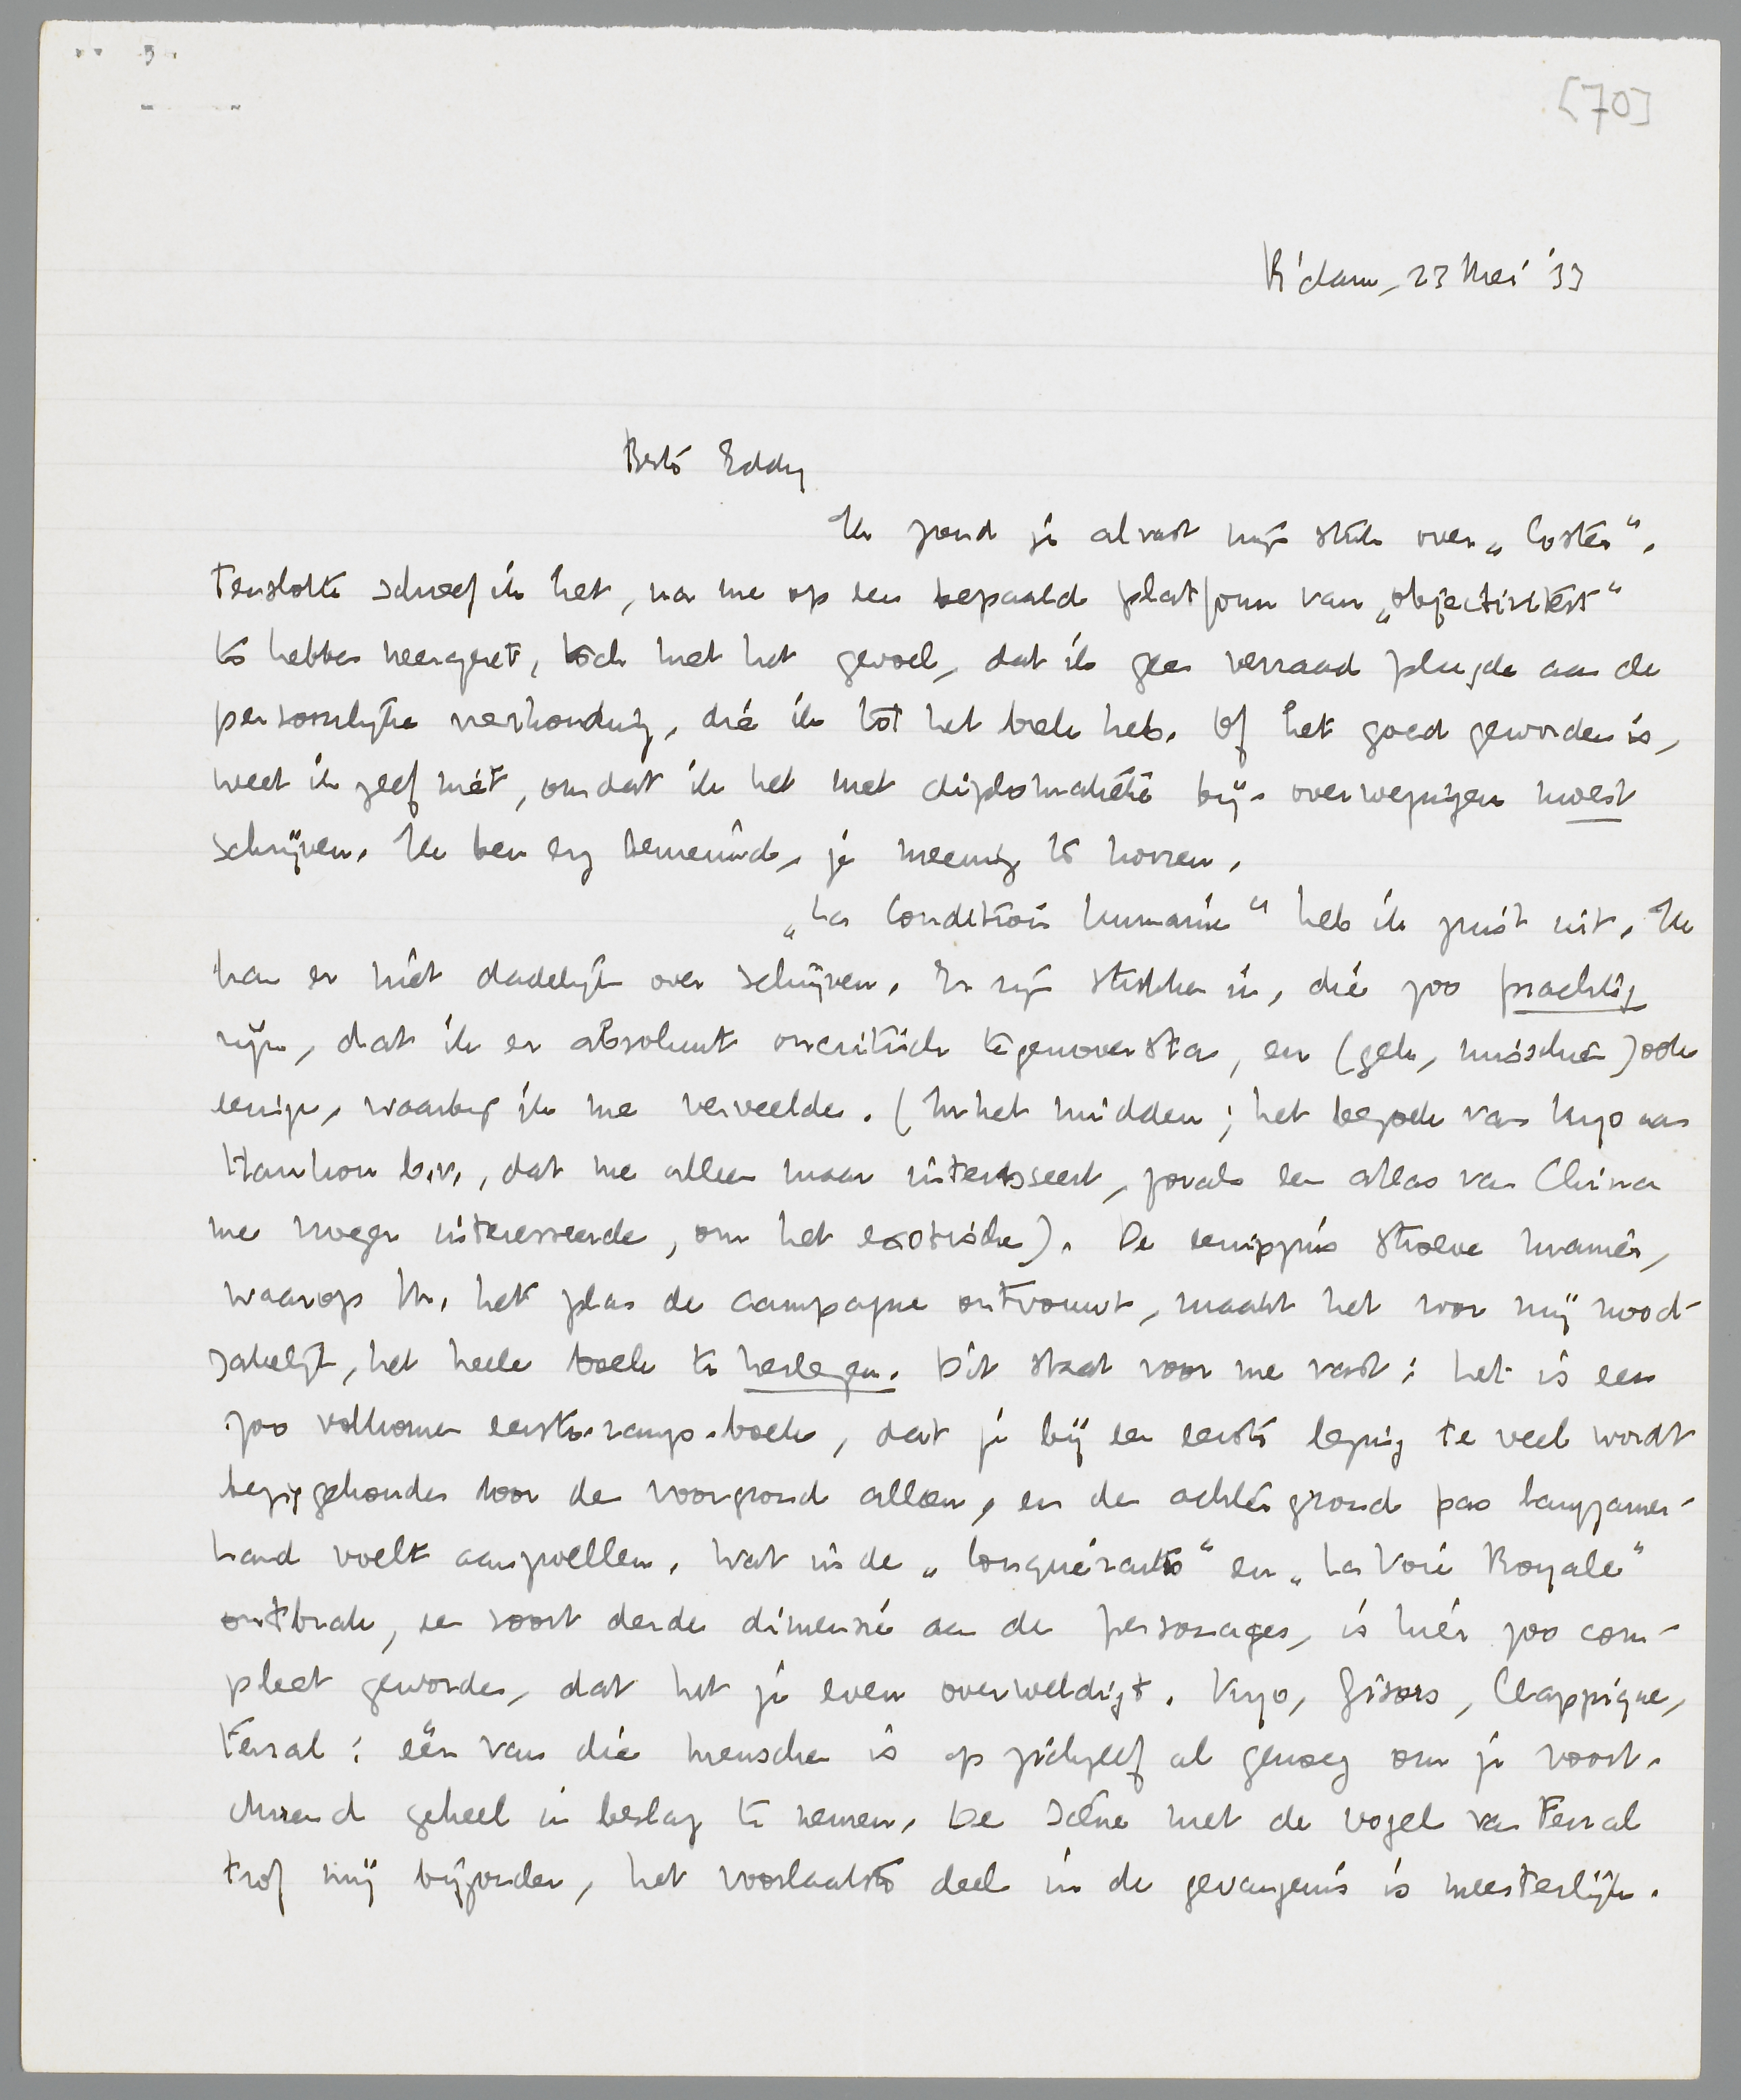 [70]
R'dam, 23 Mei '33
Beste Eddy
Ik zend je alvast mijn stuk over „Coster".
Tenslotte schreef ik het, na me op een bepaald platform van „objectiviteit"
te hebben neergezet, toch met het gevoel, dat ik geen verraad pleegde aan de
persoonlijke verhouding, die ik tot het boek heb. Of het goed geworden is,
weet ik zelf niet, omdat ik het met diplomatieke bij-overwegingen moest
schrijven. Ik ben erg benieuwd, je meening te hooren.
„La Condition humaine" heb ik juist uit. Ik
kan er niet dadelijk over schrijven. Er zijn stukken in, die zoo prachtig
zijn, dat ik er absoluut oncritisch tegenover sta, en (gek, misschien) ook
eenige, waarbij ik me verveelde. (In het midden; het bezoek van Kyo aan
Hankou b.v., dat me alleen maar interesseert, zooals een atlas van China
me vroeger interesseerde, om het exotische). De eenigszins stroeve manier,
waarop M. het plan de campagne ontvouwt, maakt het voor mij nood-
zakelijk, het heele boek te herlezen. Dit staat voor me vast: het is een
zoo volkomen eerste-rangs-boek, dat je bij een eerste lezing te veel wordt
beziggehouden door den voorgrond alleen, en den achtergrond pas langzamer-
hand voelt aanzwellen. Wat in de „Conquérants" en „La Voie Royale"
ontbrak, een soort derde dimensie aan de personages, is hier zoo com-
pleet geworden, dat het je even overweldigt. Kyo, Gisors, Clappique,
Ferral: één van die menschen is op zichzelf al genoeg om je voort-
durend geheel in beslag te nemen. De scène met de vogels van Ferral
trof mij bijzonder, het voorlaatste deel in de gevangenis is meesterlijk.